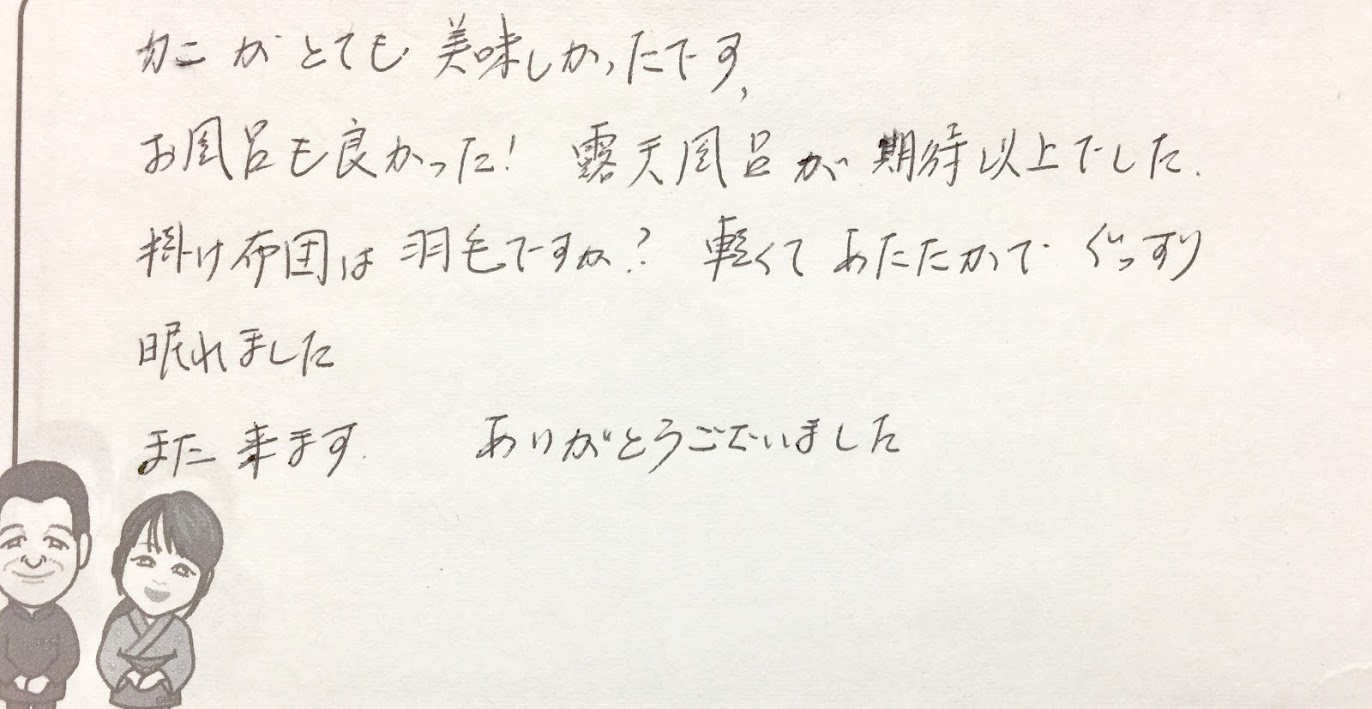 カニがとても美味しかったです、
お風呂も良かった！ 露天風呂が期待以上でした.
掛け布団は羽毛ですか？ 軽くてあたたかで ぐっすり
眠れました
また来ます. ありがとうございました